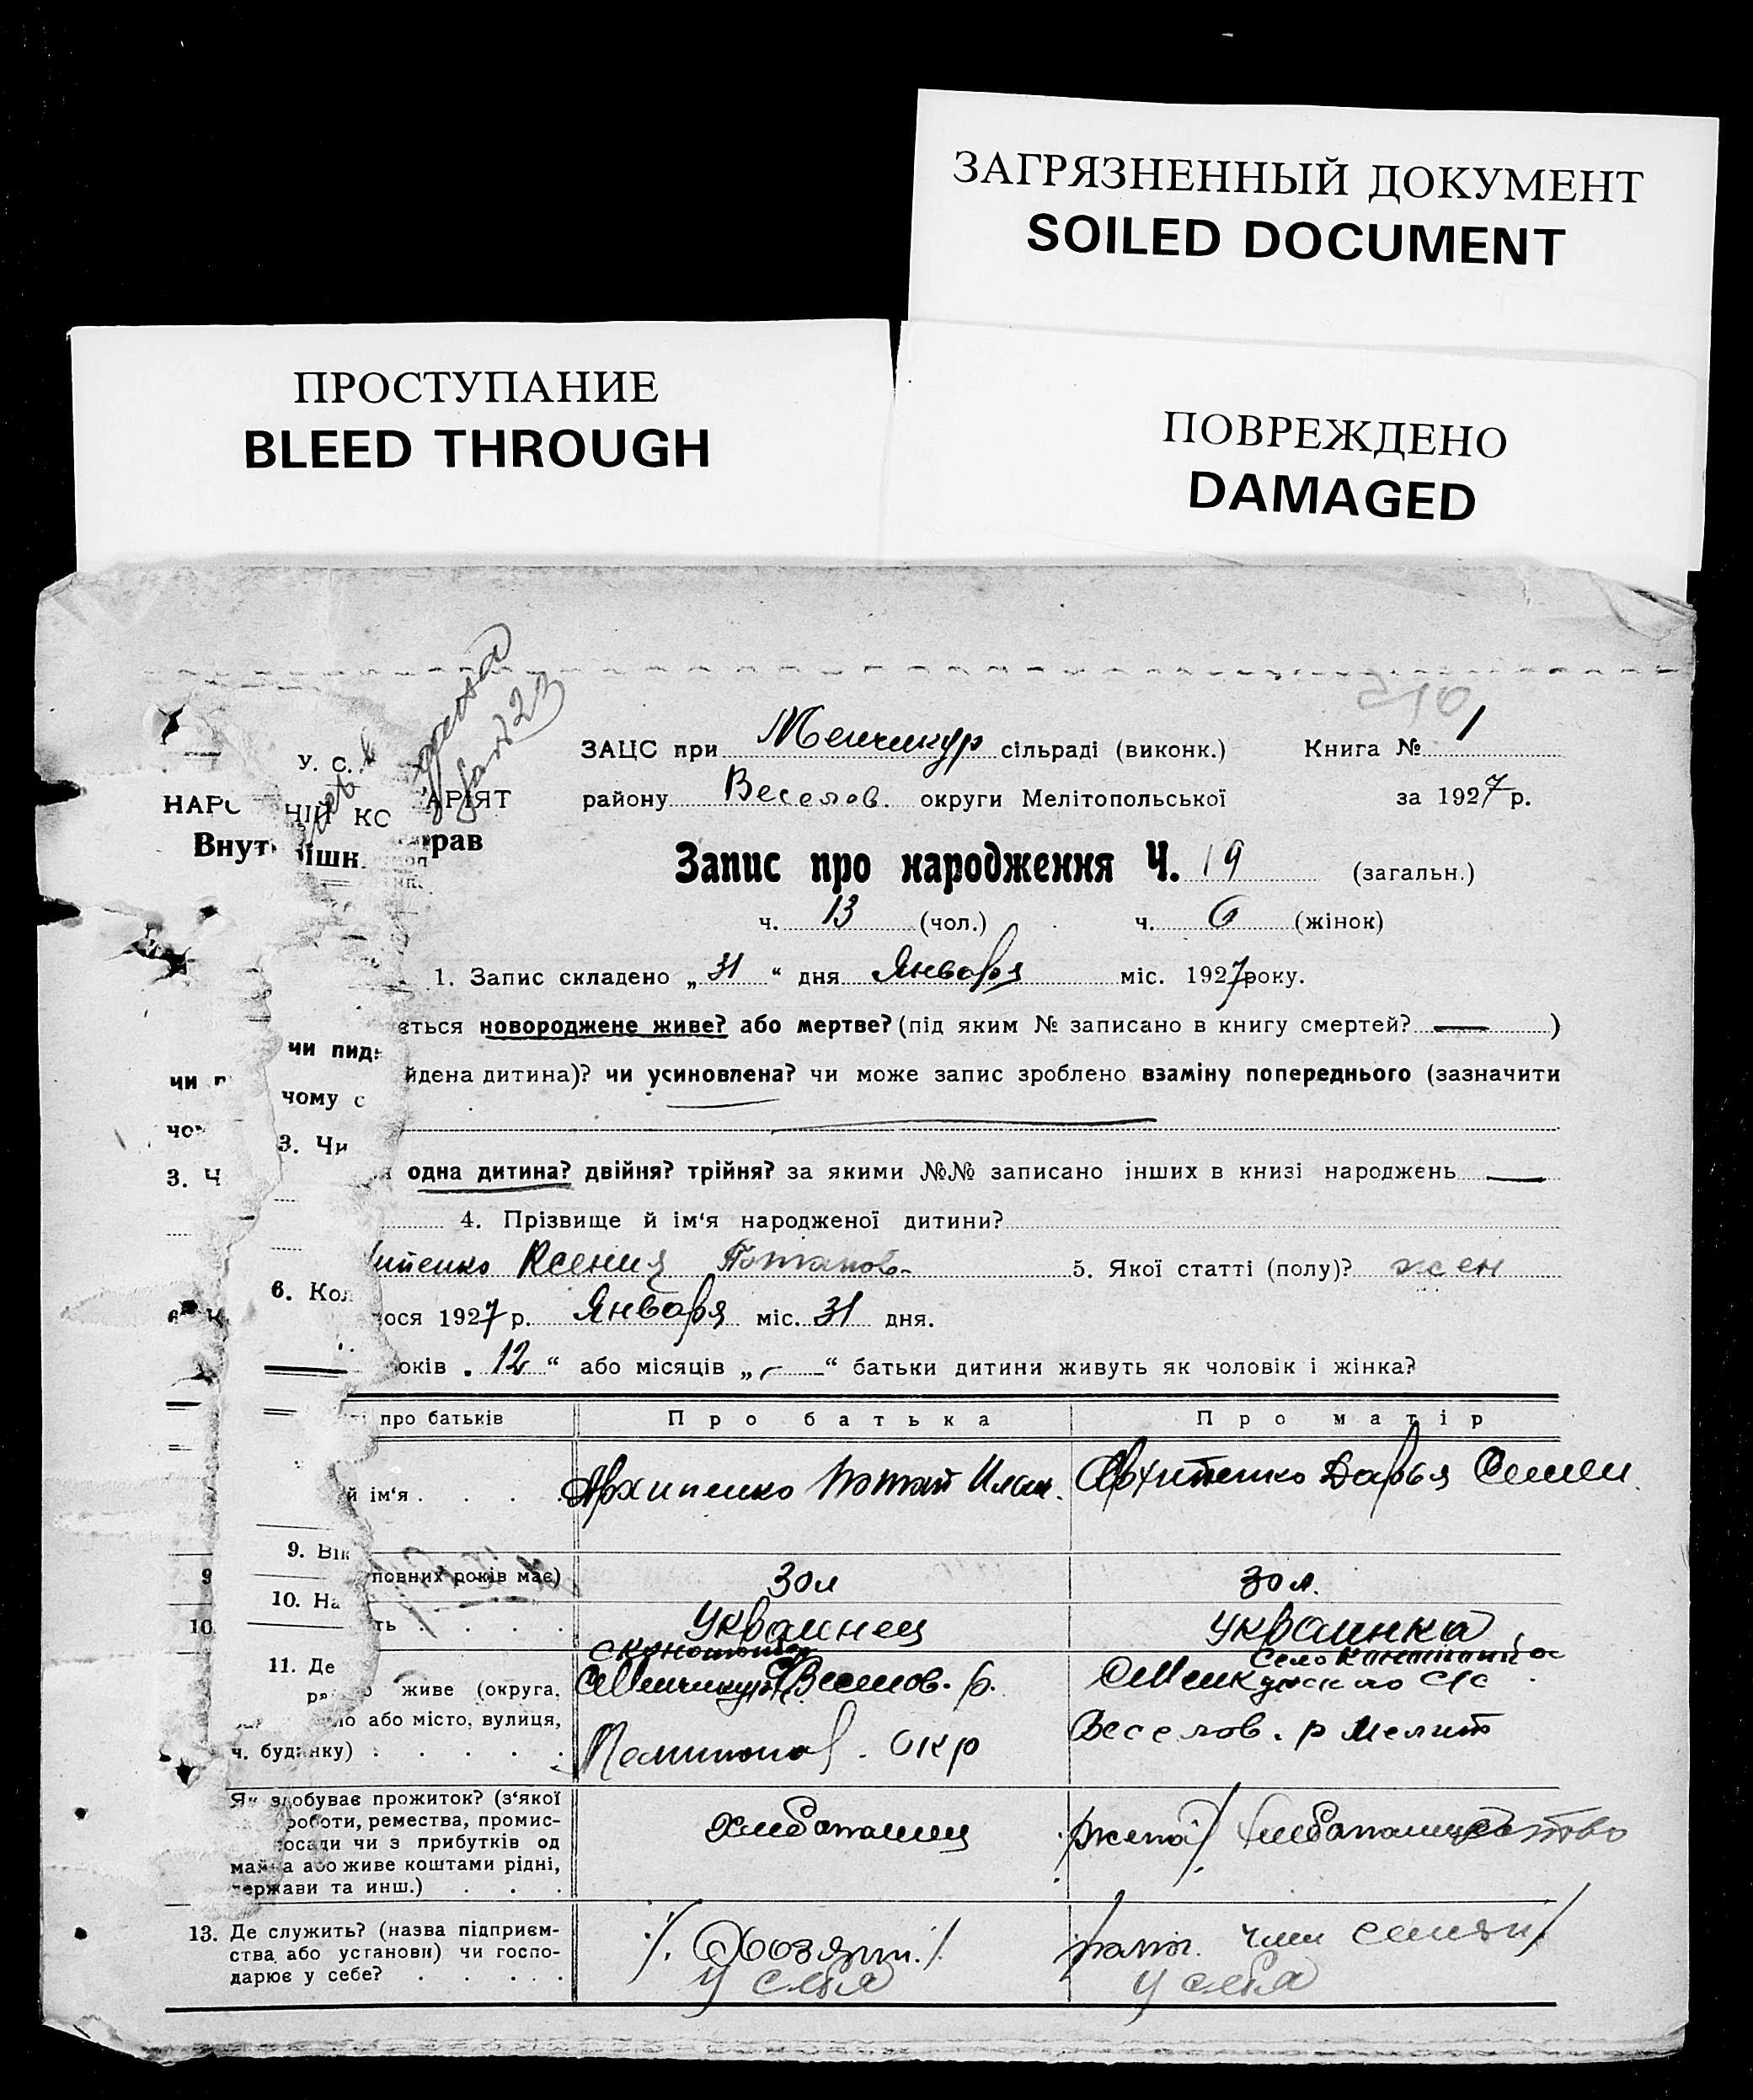 ЗАГРЯЗНЕННЫЙ ДОКУМЕНТ
SOILED DOCUMENT
ПРОСТУПАНИЕ
BLEED THROUGH
ПОВРЕЖДЕНО
DAMAGED
У. С.
НАР ЦІЙ КО АРІЯТ
Внут ішн. рав
ЗАЦС при Менчикур сільраді (виконк.) Книга № 1
району Веселов. округи Мелітопольської за 1927 р.
Запис про народження Ч. 19 (загальн.)
ч. 13 (чол.) ч. 6 (жінок)
1. Запис складено „31“ дня Января міс. 1927 року.
ється новороджене живе? або мертве? (під яким № записано в книгу смертей? — )
чи пид
чи п йдена дитина)? чи усиновлена? чи може запис зроблено взаміну попереднього (зазначити
чому с
чо
3. Чи
3. Ч одна дитина? двійня? трійня? за якими №№ записано інших в книзі народжень —
4. Прізвище й ім'я народженої дитини?
ипенко Ксения Потапов- 5. Якої статті (полу)? жен
6. Кол
6. К ося 1927 р. Января міс. 31 дня.
оків „12“ або місяців „—“ батьки дитини живуть як чоловік і жінка?
про батьків Про батька Про матір
й ім'я . . . . Архипенко Потап Архипенко Дарья Семен
9. Вік
9 повних років має) 30 л 30 л.
10. На
10. ть . . . . Украинец Украинка
11. Де
село
живе (округа, Веселов. р.
ло або місто, вулиця, Веселов. р Мелит
ч. будинку) . . . . . окр
Як здобуває прожиток? (з'якої
роботи, ремества, промис- Хлебопашец жена хлебопашество
посади чи з прибутків од
майна або живе коштами рідні,
держави та инш.) . . .
13. Де служить? (назва підприєм- Хозяин член семьи
ства або установи) чи госпо- у себя у себя
дарює у себе? . . . . .